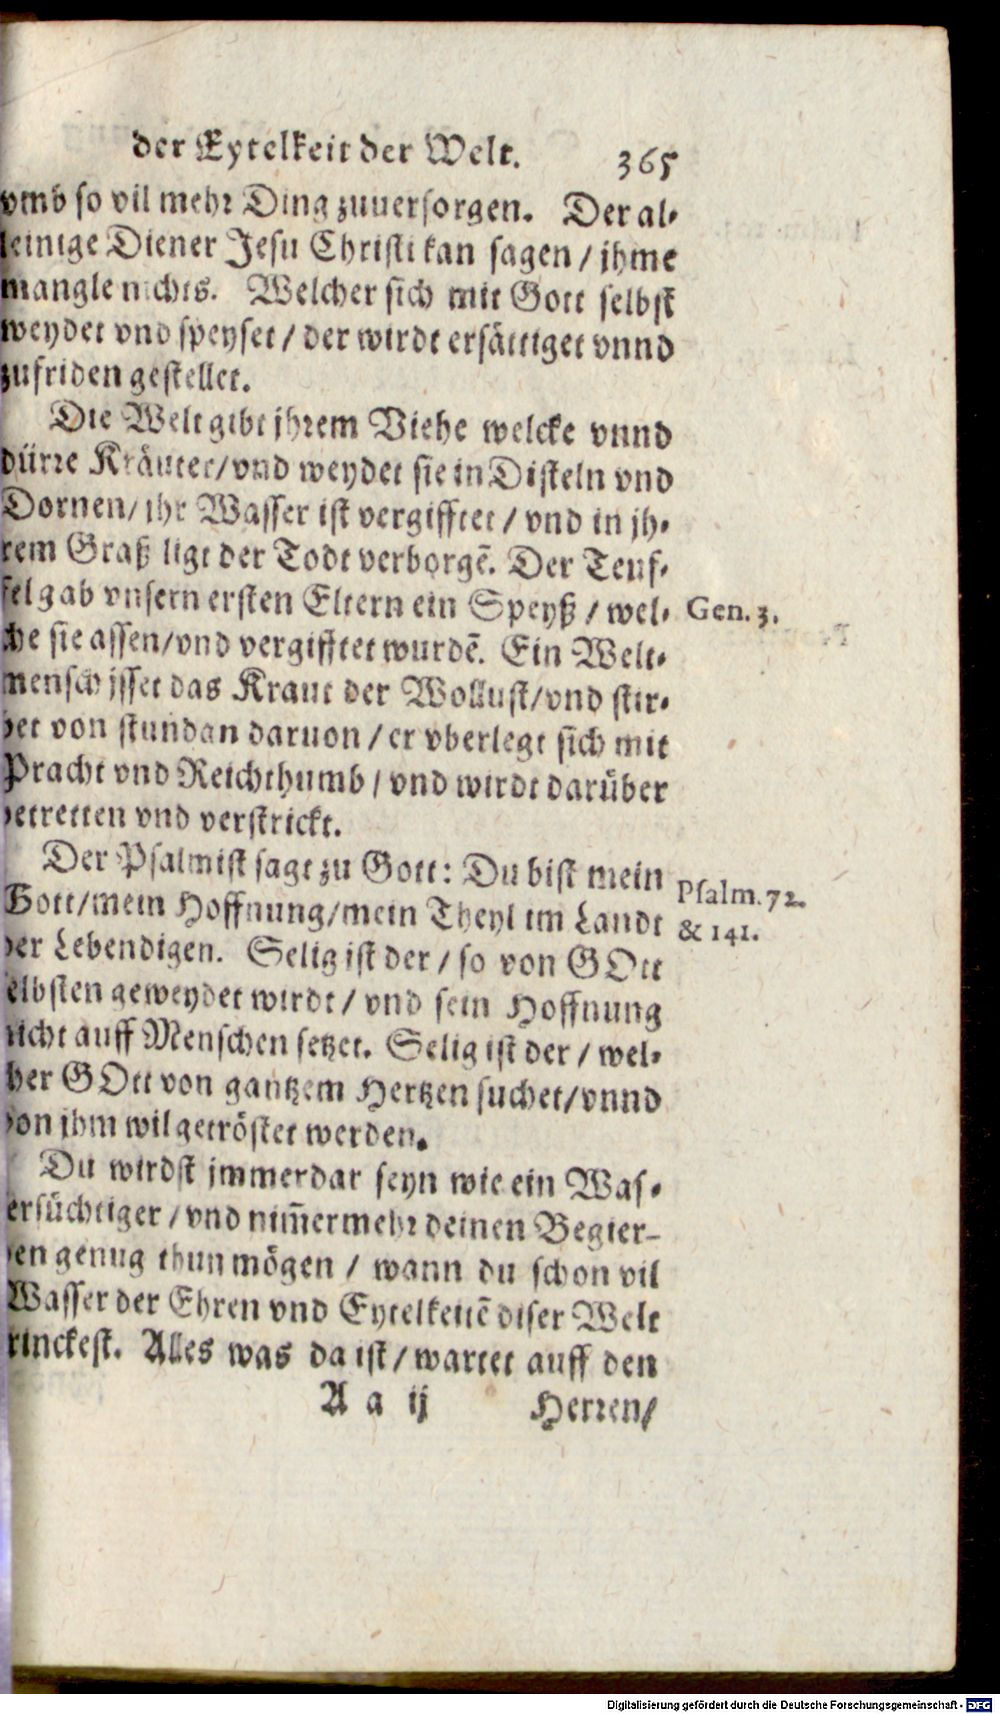 der Eytelkeit der Welt. 365
vmb so vil mehr Ding zuuersorgen. Der al-
leinige Diener Jesu Christi kan sagen / jhme
mangle nichts. Welcher sich mit Gott selbst
weydet vnd speyset / der wirdt ersättiget vnnd
zufriden gestellet.
Die Welt gibt jhrem Viehe welcke vnnd
dürre Kräuter/vnd weydet sie in Disteln vnd
Dornen/ jhr Wasser ist vergifftet / vnd in jh-
rem Graß ligt der Todt verborgẽ. Der Teuf-
fel gab vnsern ersten Eltern ein Speyß / wel-
che sie assen/vnd vergifftet wurdẽ. Ein Welt-
mensch jsset das Kraut der Wollust/vnd stir-
bet von stundan daruon / er vberlegt sich mit
Pracht vnd Reichthumb / vnd wirdt darüber
betretten vnd verstrickt.
Der Psalmist sagt zu Gott: Du bist mein
Gott/mein Hoffnung/mein Theyl im Landt
der Lebendigen. Selig ist der / so von GOtt
selbsten geweydet wirdt / vnd sein Hoffnung
nicht auff Menschen setzet. Selig ist der / wel-
cher GOtt von gantzem Hertzen suchet/vnnd
von jhm wil getröstet werden.
Du wirdst jmmerdar seyn wie ein Was-
sersüchtiger / vnd nim̃ermehr deinen Begier-
den genug thun mögen / wann du schon vil
Wasser der Ehren vnd Eytelkeitẽ diser Welt
trinckest. Alles was da ist / wartet auff den
A a ij Herren/
Gen. 3.
Psalm. 72.
& 141.
Digitalisierung gefördert durch die Deutsche Forschungsgemeinschaft - DFG